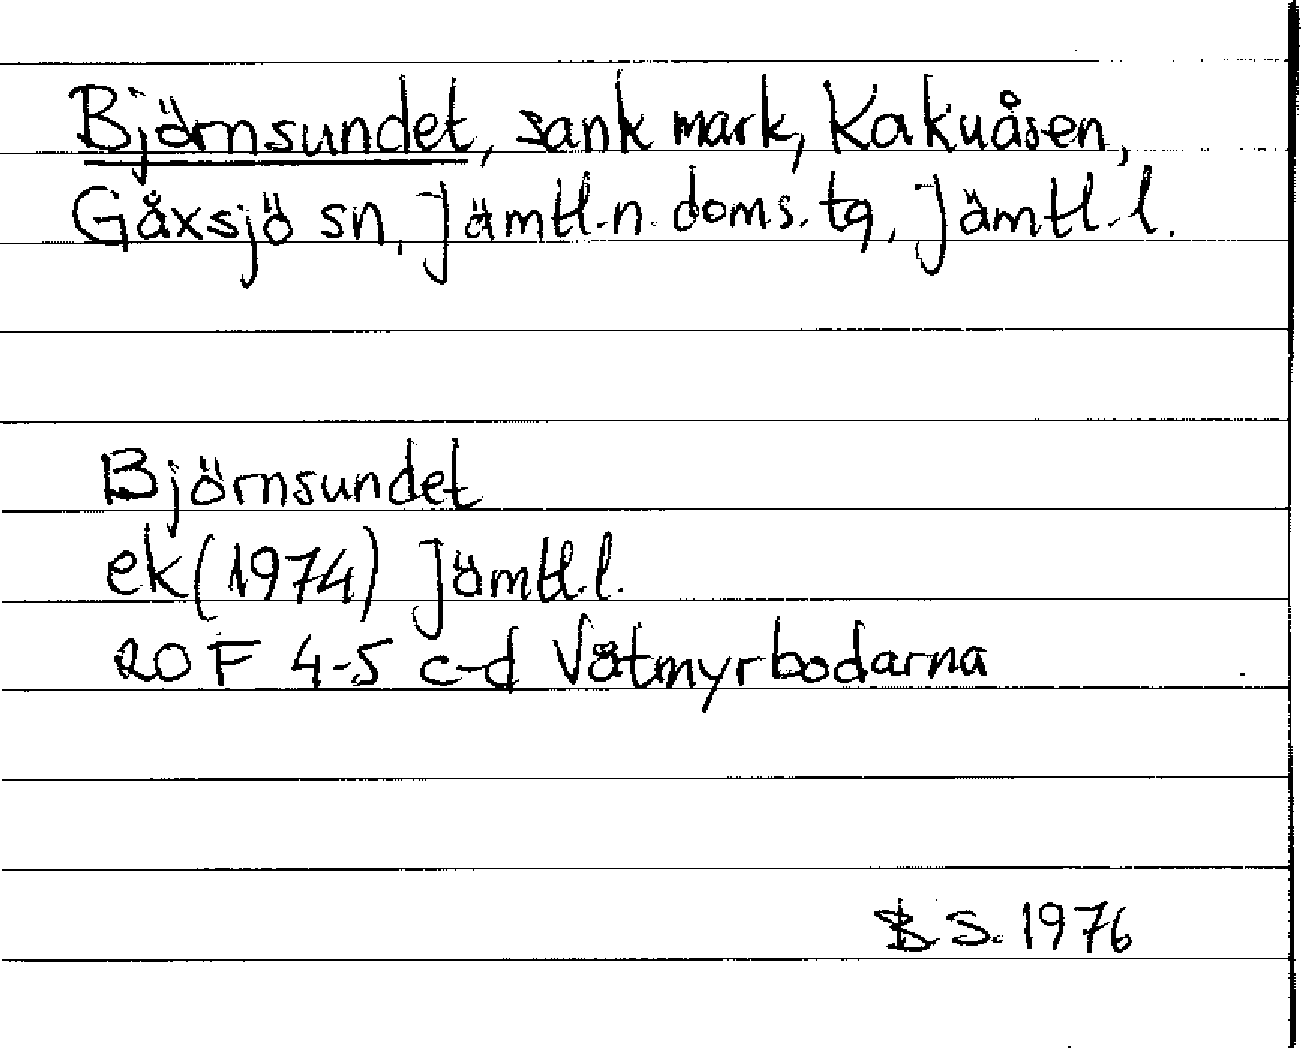 Björnsundet, sank mark, Kakuåsen,
Gåxsjö sn, Jämtl.n. doms. tg, Jämtl. l.
Björnsundet
ek (1974) Jämtl.l.
20 F 4-5 c-d Våtmyrbodarna
B.S. 1976